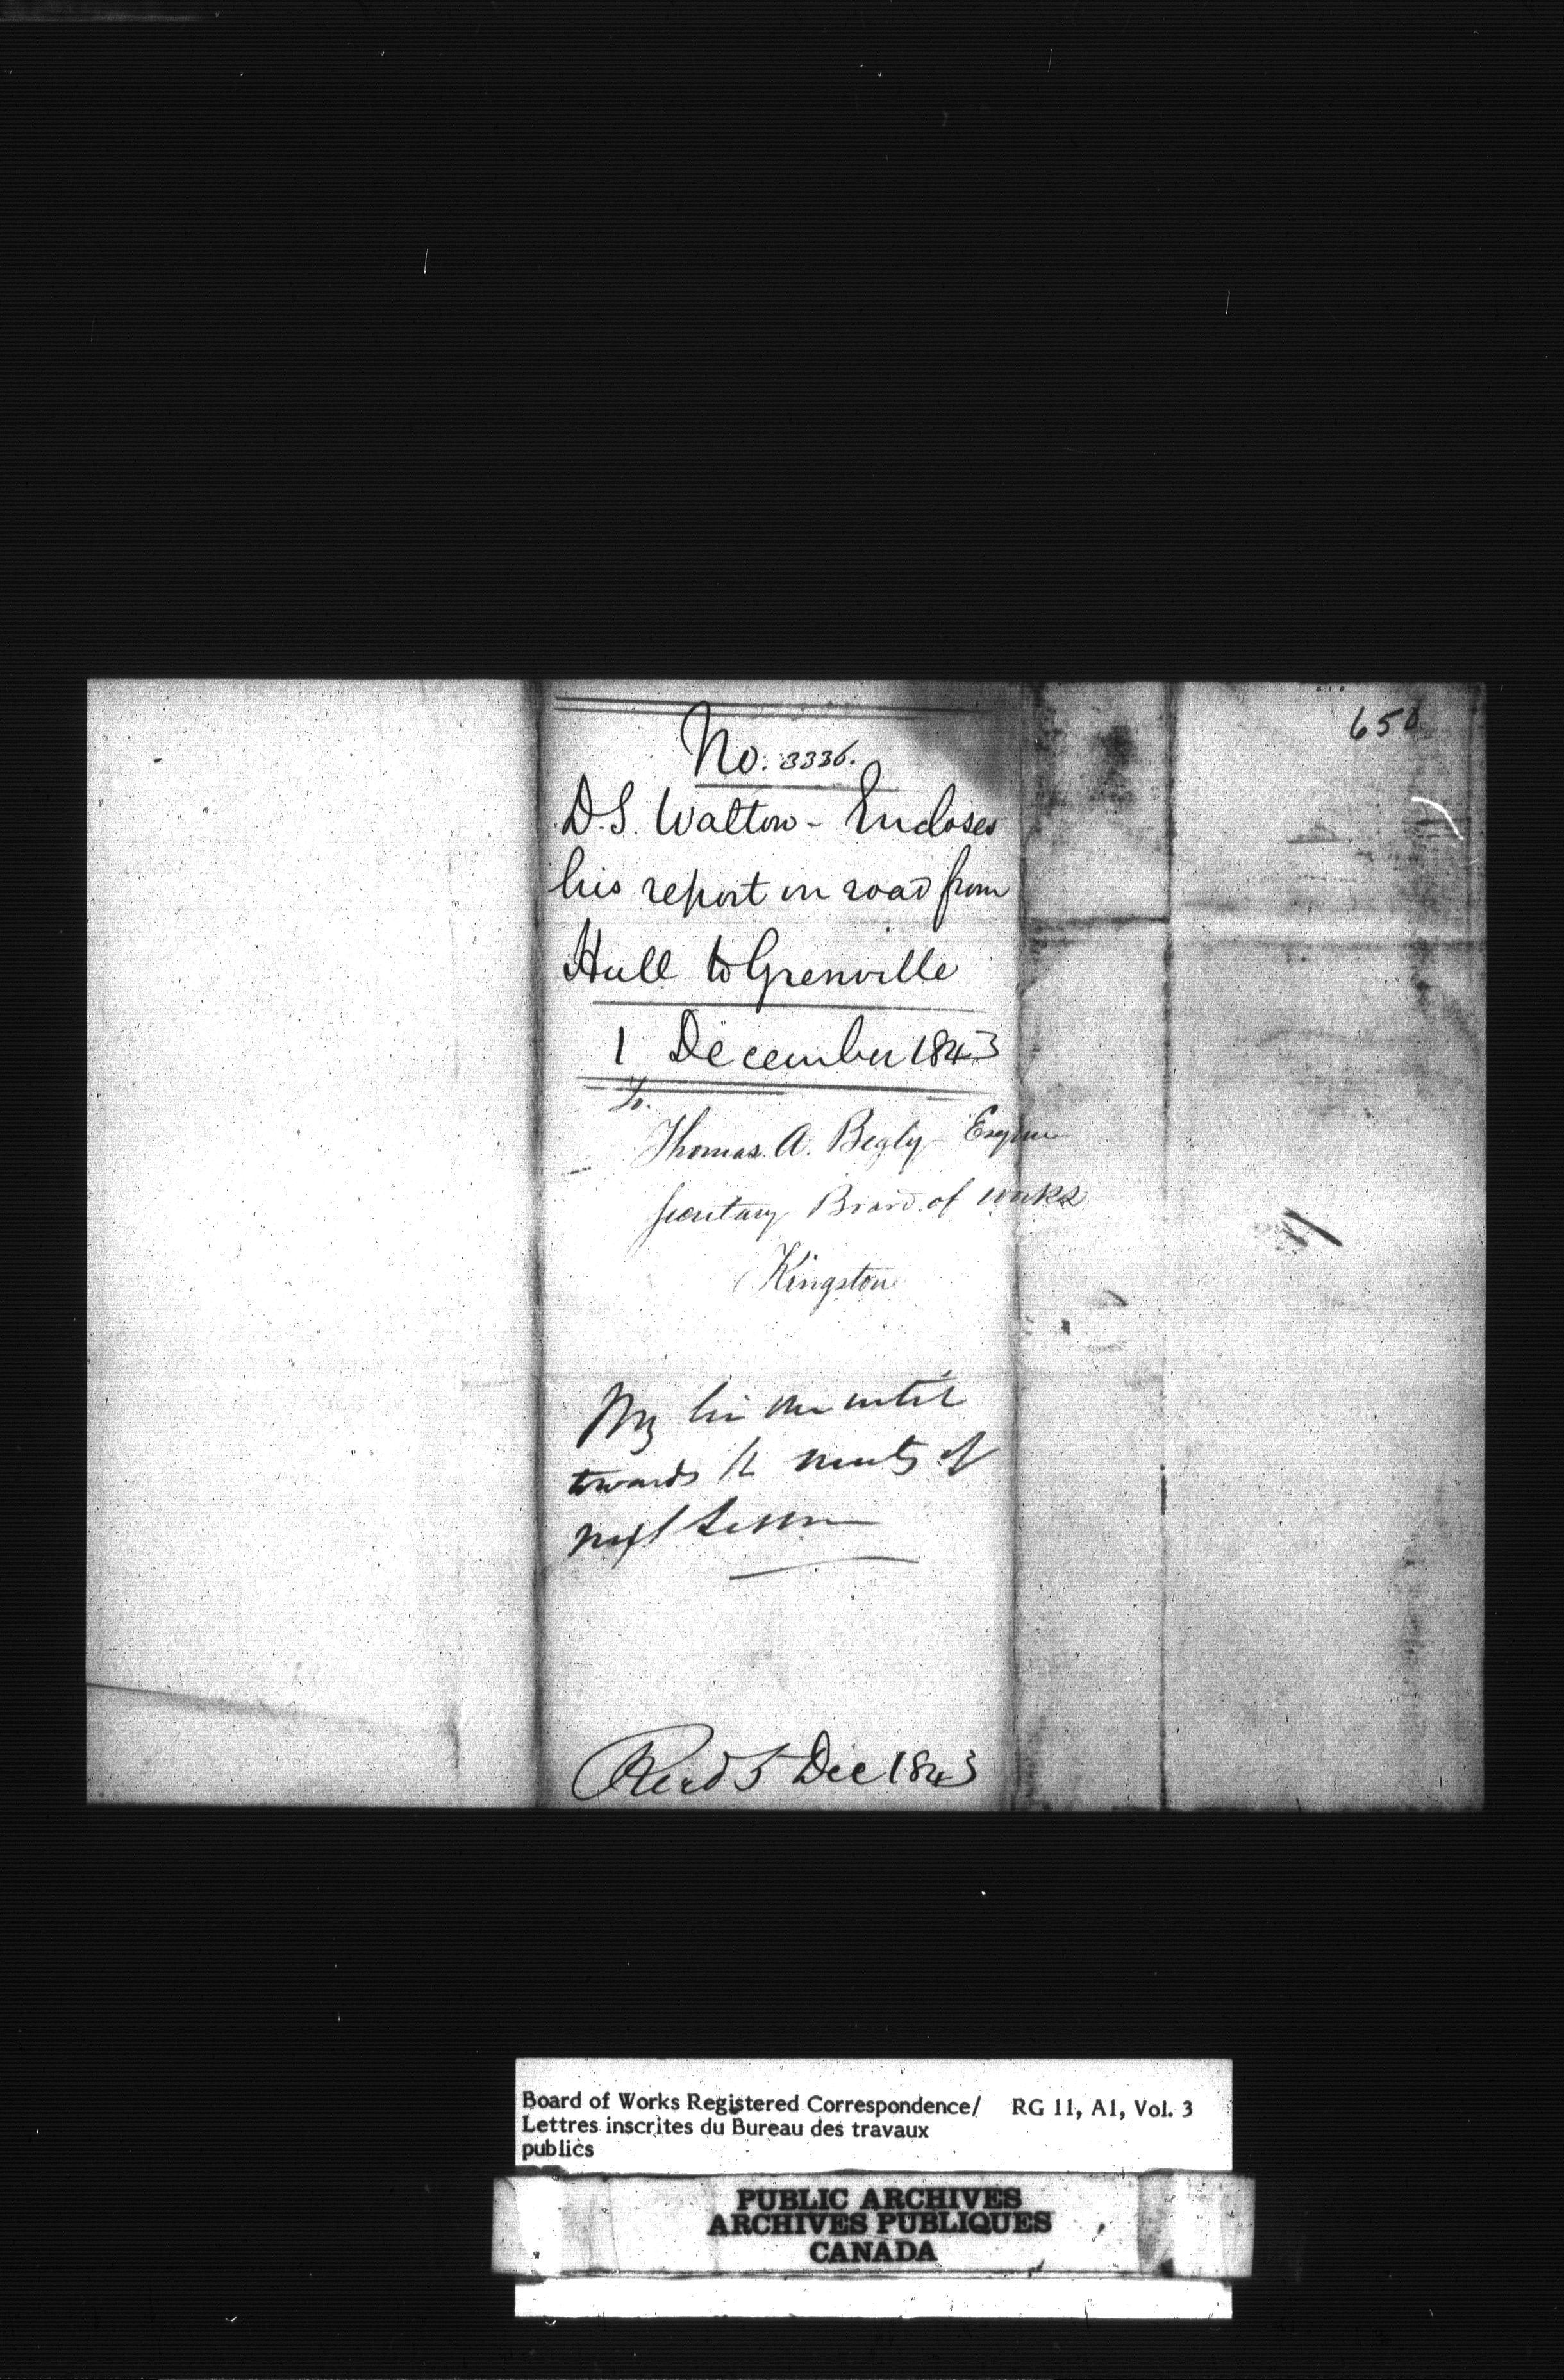 650
No. 3336.
D.S. Walton - Encloses
his report on road from
Hull to Grenville
1 December 1843
To.
Thomas. A. Begly Esquire
Secretary Board of works
Kingston
lie over until
towards the of
next Session
Recd 5 Dec 1843
Board of Works Registered Correspondence/ RG 11, A1, Vol. 3
Lettres inscrites du Bureau des travaux
publics
PUBLIC ARCHIVES
ARCHIVES PUBLIQUES
CANADA